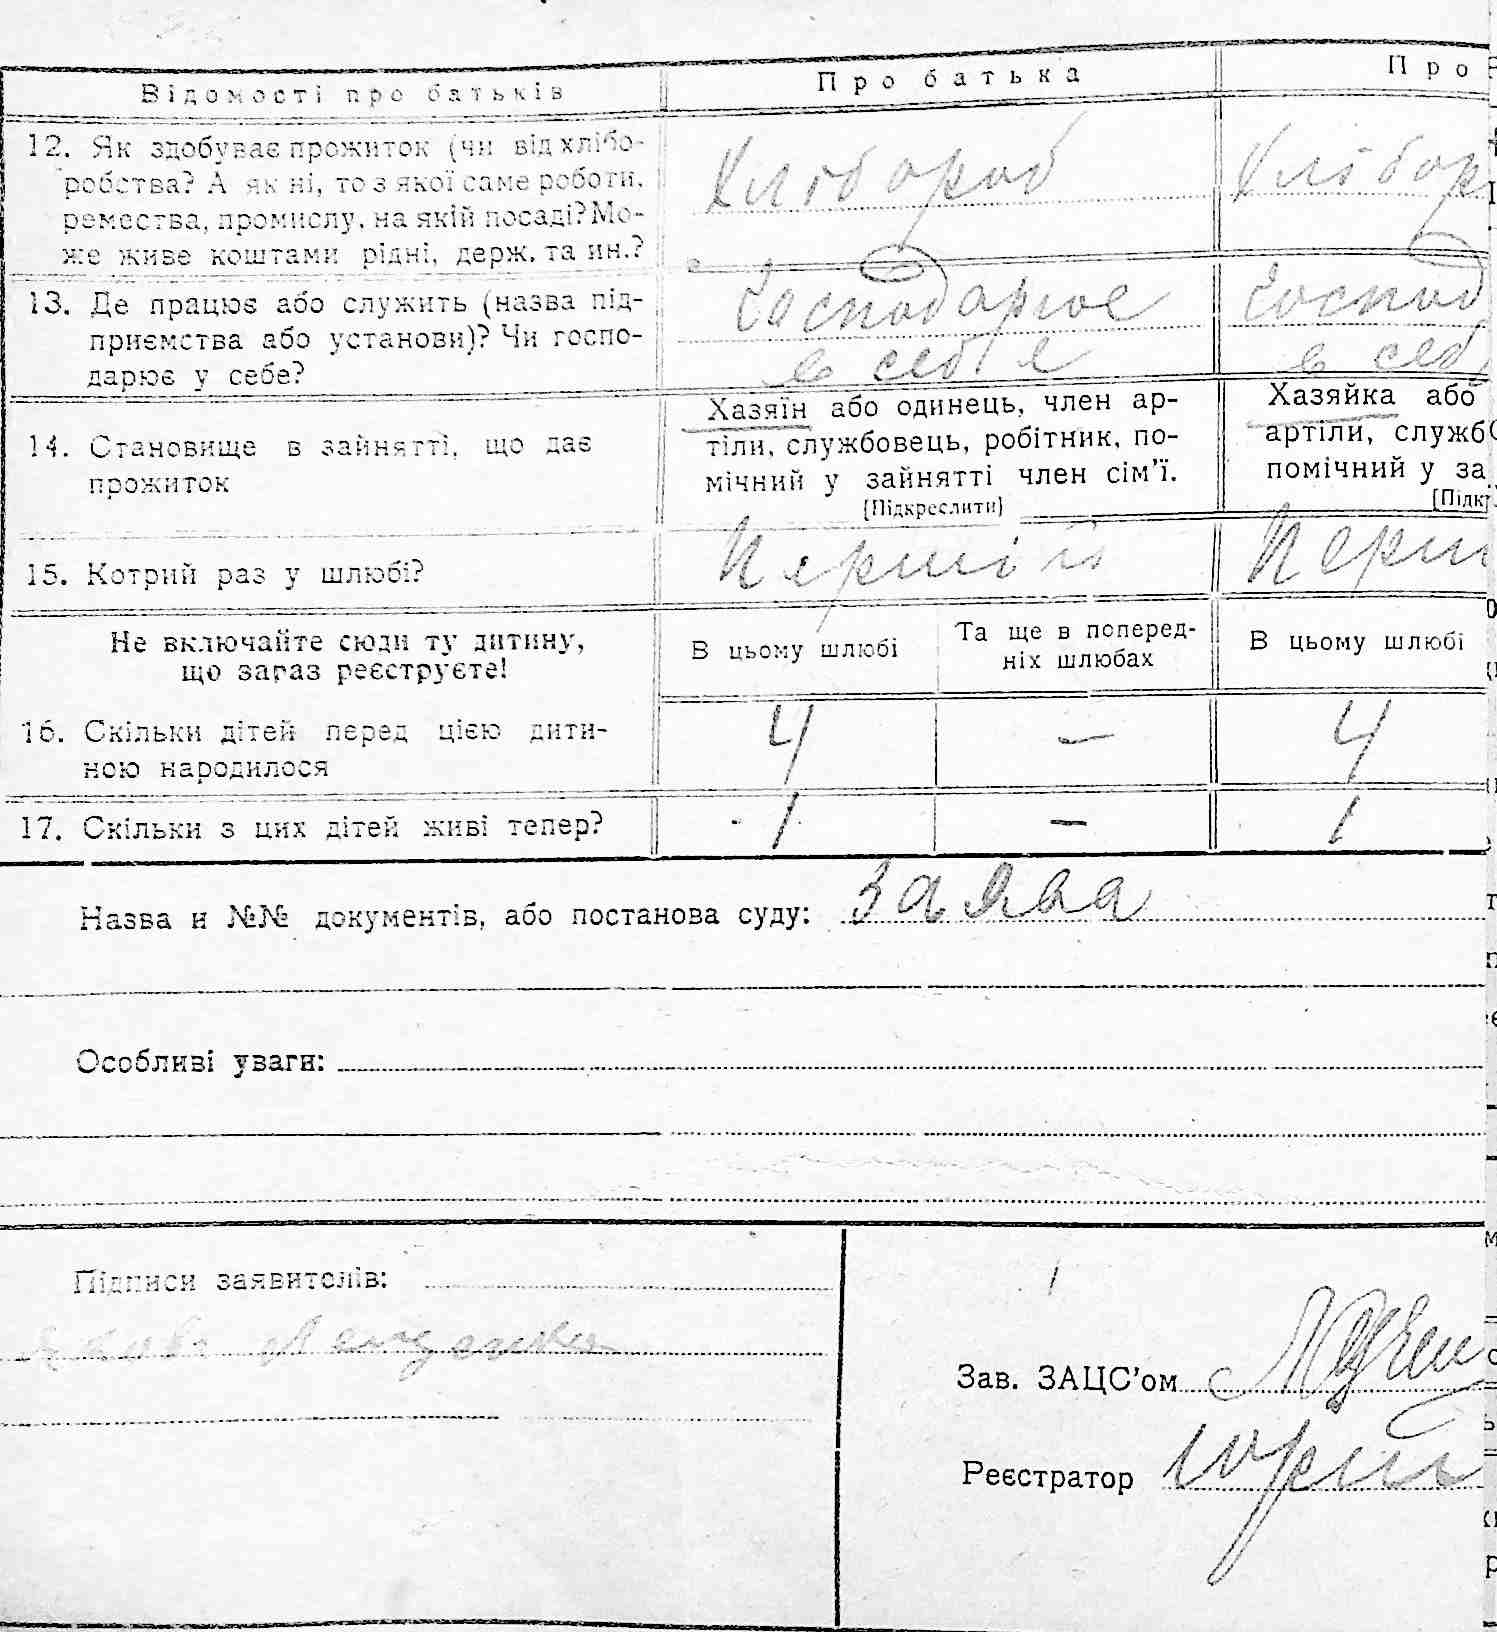 Відомості про батьків
Про батька
Про
12. Як здобуває прожиток (чи від хлібо-
робства? А як ні, то з якої саме роботи,
ремества, промислу, на якій посаді? Мо-
же живе коштами рідні, держ. та ин.?
Хлібороб
Хлібор
13. Де працює або служить (назва під-
приємства або установи)? Чи госпо-
дарює у себе?
Господарює
в себе
Господ
в себ
14. Становище в зайнятті, що дає
прожиток
Хазяїн або одинець, член ар-
тіли, службовець, робітник, по-
мічний у зайнятті член сім'ї.
[Підкреслити]
Хазяйка або
артіли, служб
помічний у за
[Підк
15. Котрий раз у шлюбі?
Перший
Перш
Не включайте сюди ту дитину,
що зараз реєструєте!
В цьому шлюбі
Та ще в поперед-
ніх шлюбах
В цьому шлюбі
16. Скільки дітей перед цією дити-
ною народилося
4
—
4
17. Скільки з цих дітей живі тепер?
1
—
1
Назва и №№ документів, або постанова суду: Заява
Особливі уваги:
Підписи заявителів:
Зав. ЗАЦС'ом
Реєстратор